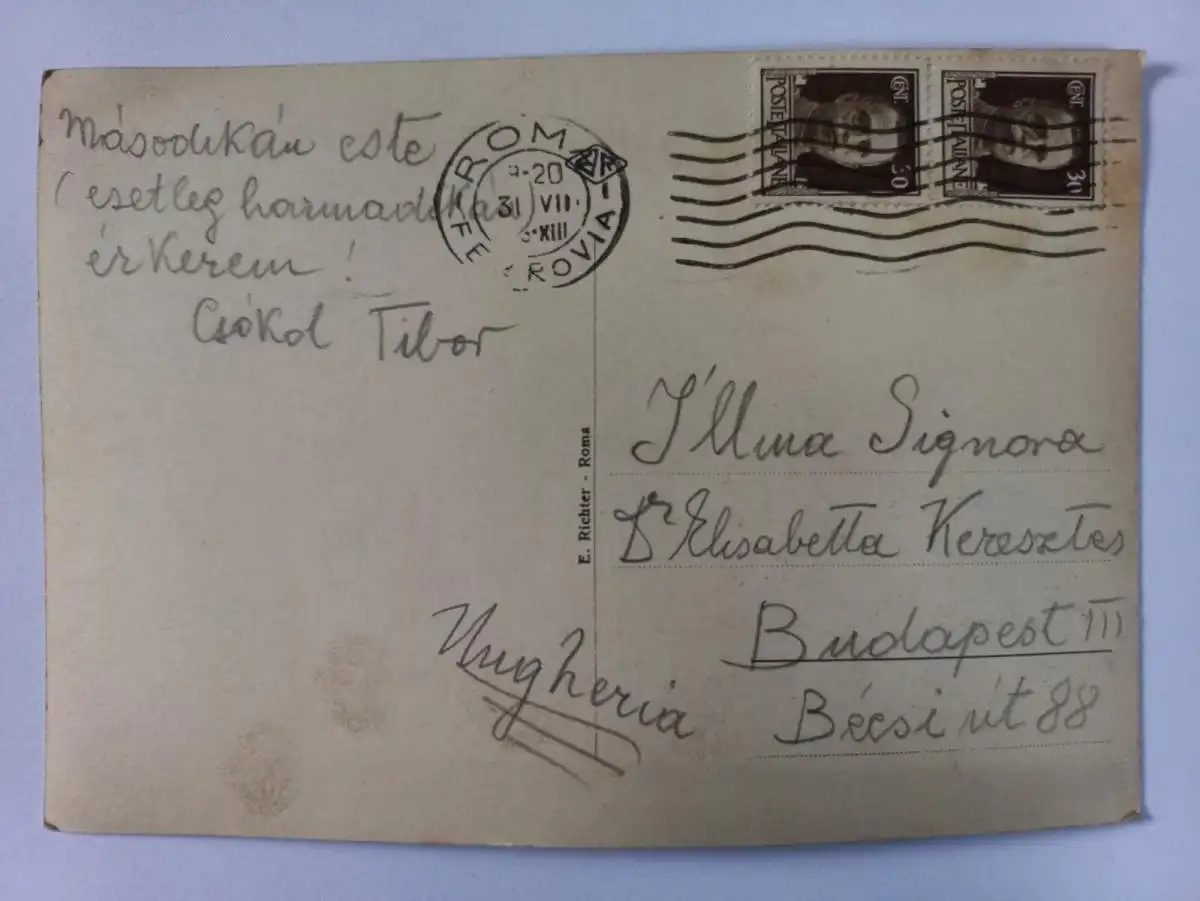 Másodikán este
(esetleg harmadikán)
érkezem!
Csókol Tibor
ROMA
FERROVIA
-20
31 VII
XIII
POSTE ITALIANE
CENT. 30
POSTE ITALIANE
CENT. 30
E. Richter - Roma
Illma Signora
Dr Elisabetta Keresztes
Budapest III
Bécsi út 88
Ungheria